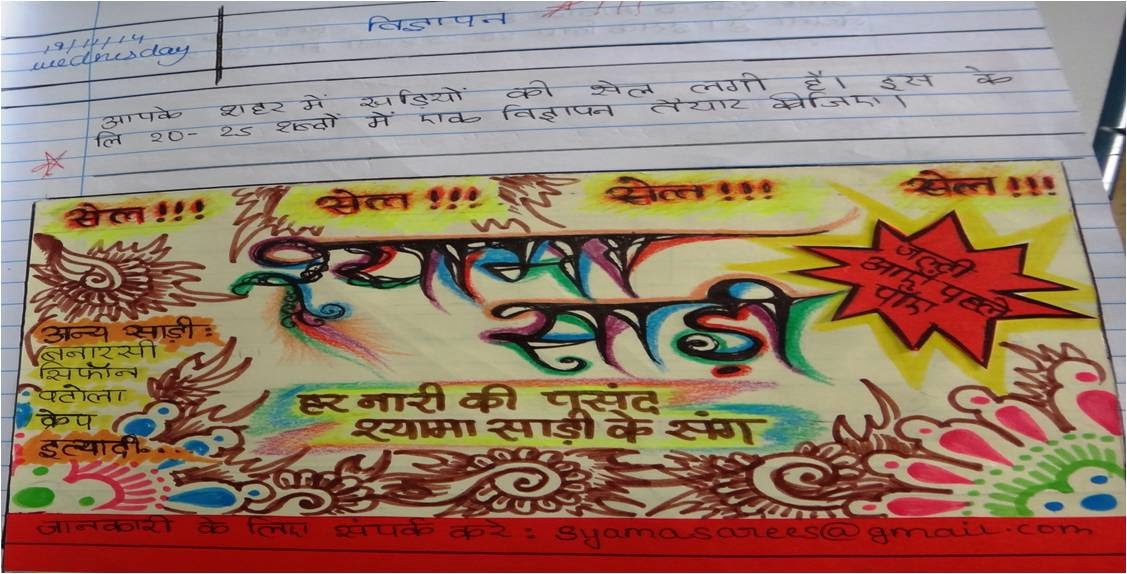 विज्ञापन
19/11/14
wednesday
आपके शहर में साड़ियों की सेल लगी है। इस के
लि 20-25 शब्दों में एक विज्ञापन तैयार कीजिए।
सेल !!! सेल !!! सेल !!! सेल !!!
श्यामा
साड़ी
जल्दी
आएँ पहले
पाएँ
अन्य साड़ी :
बनारसी
सिफॉन
पटोला
क्रेप
इत्यादी....
हर नारी की पसंद
श्यामा साड़ी के संग
जानकारी के लिए संपर्क करे : syamasarees@gmail.com